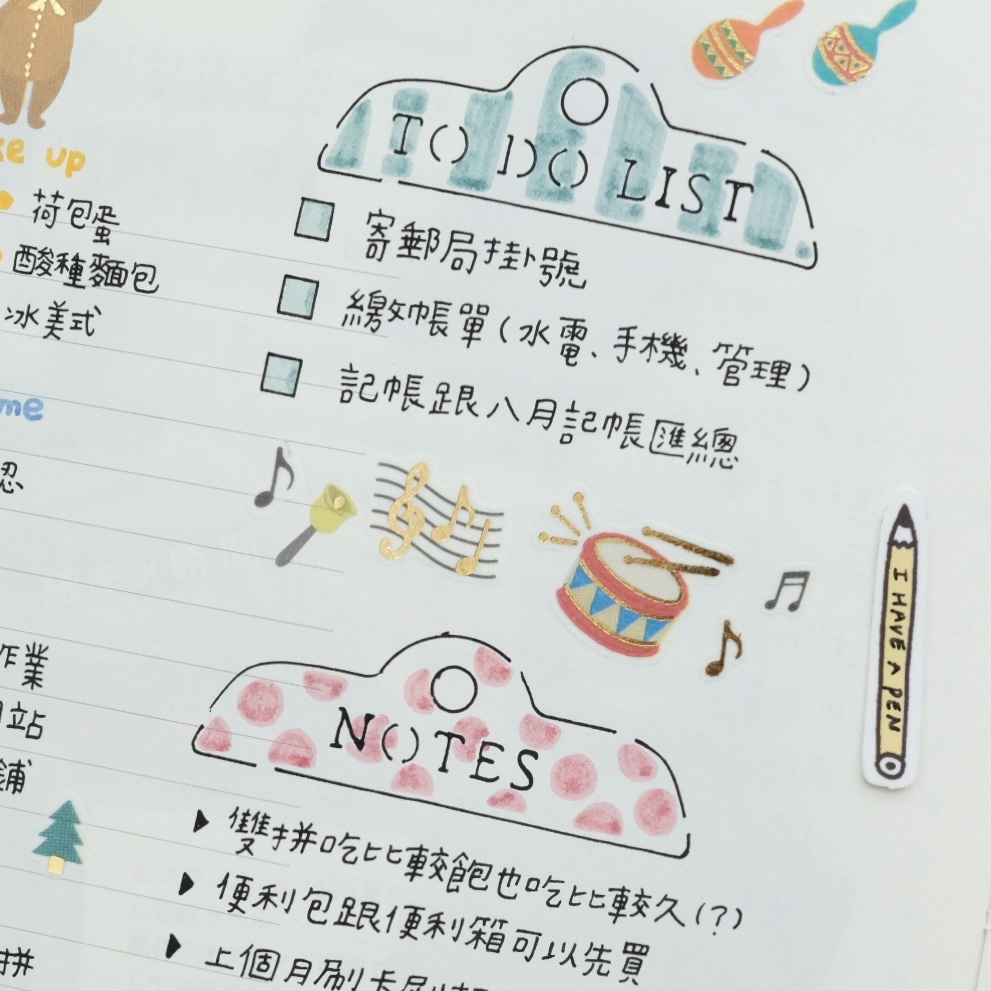 ke up
荷包蛋
酸種麵包
冰美式
me
認
作業
站
舖
拼
TO DO LIST
寄郵局掛號
繳帳單(水電、手機、管理)
記帳跟八月記帳匯總
I HAVE A PEN
NOTES
雙拼吃比較飽也吃比較久(?)
便利包跟便利箱可以先買
上個月刷卡